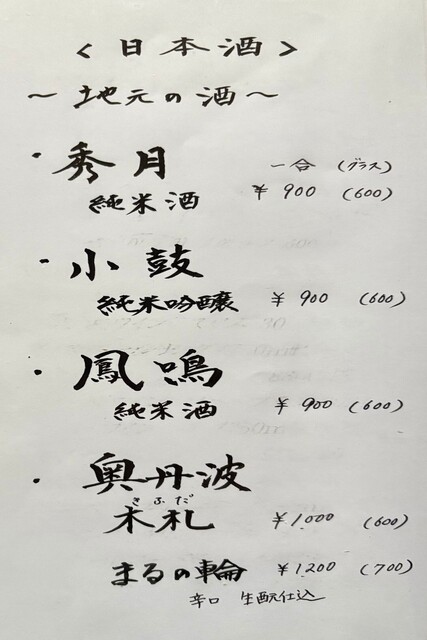 <日本酒>
～地元の酒～
・秀月 一合 (グラス)
純米酒 ¥900 (600)
・小鼓
純米吟醸 ¥900 (600)
・鳳鳴
純米酒 ¥900 (600)
・奥丹波
きふだ
木札 ¥1000 (600)
まるの輪 ¥1200 (700)
辛口 生酛仕込